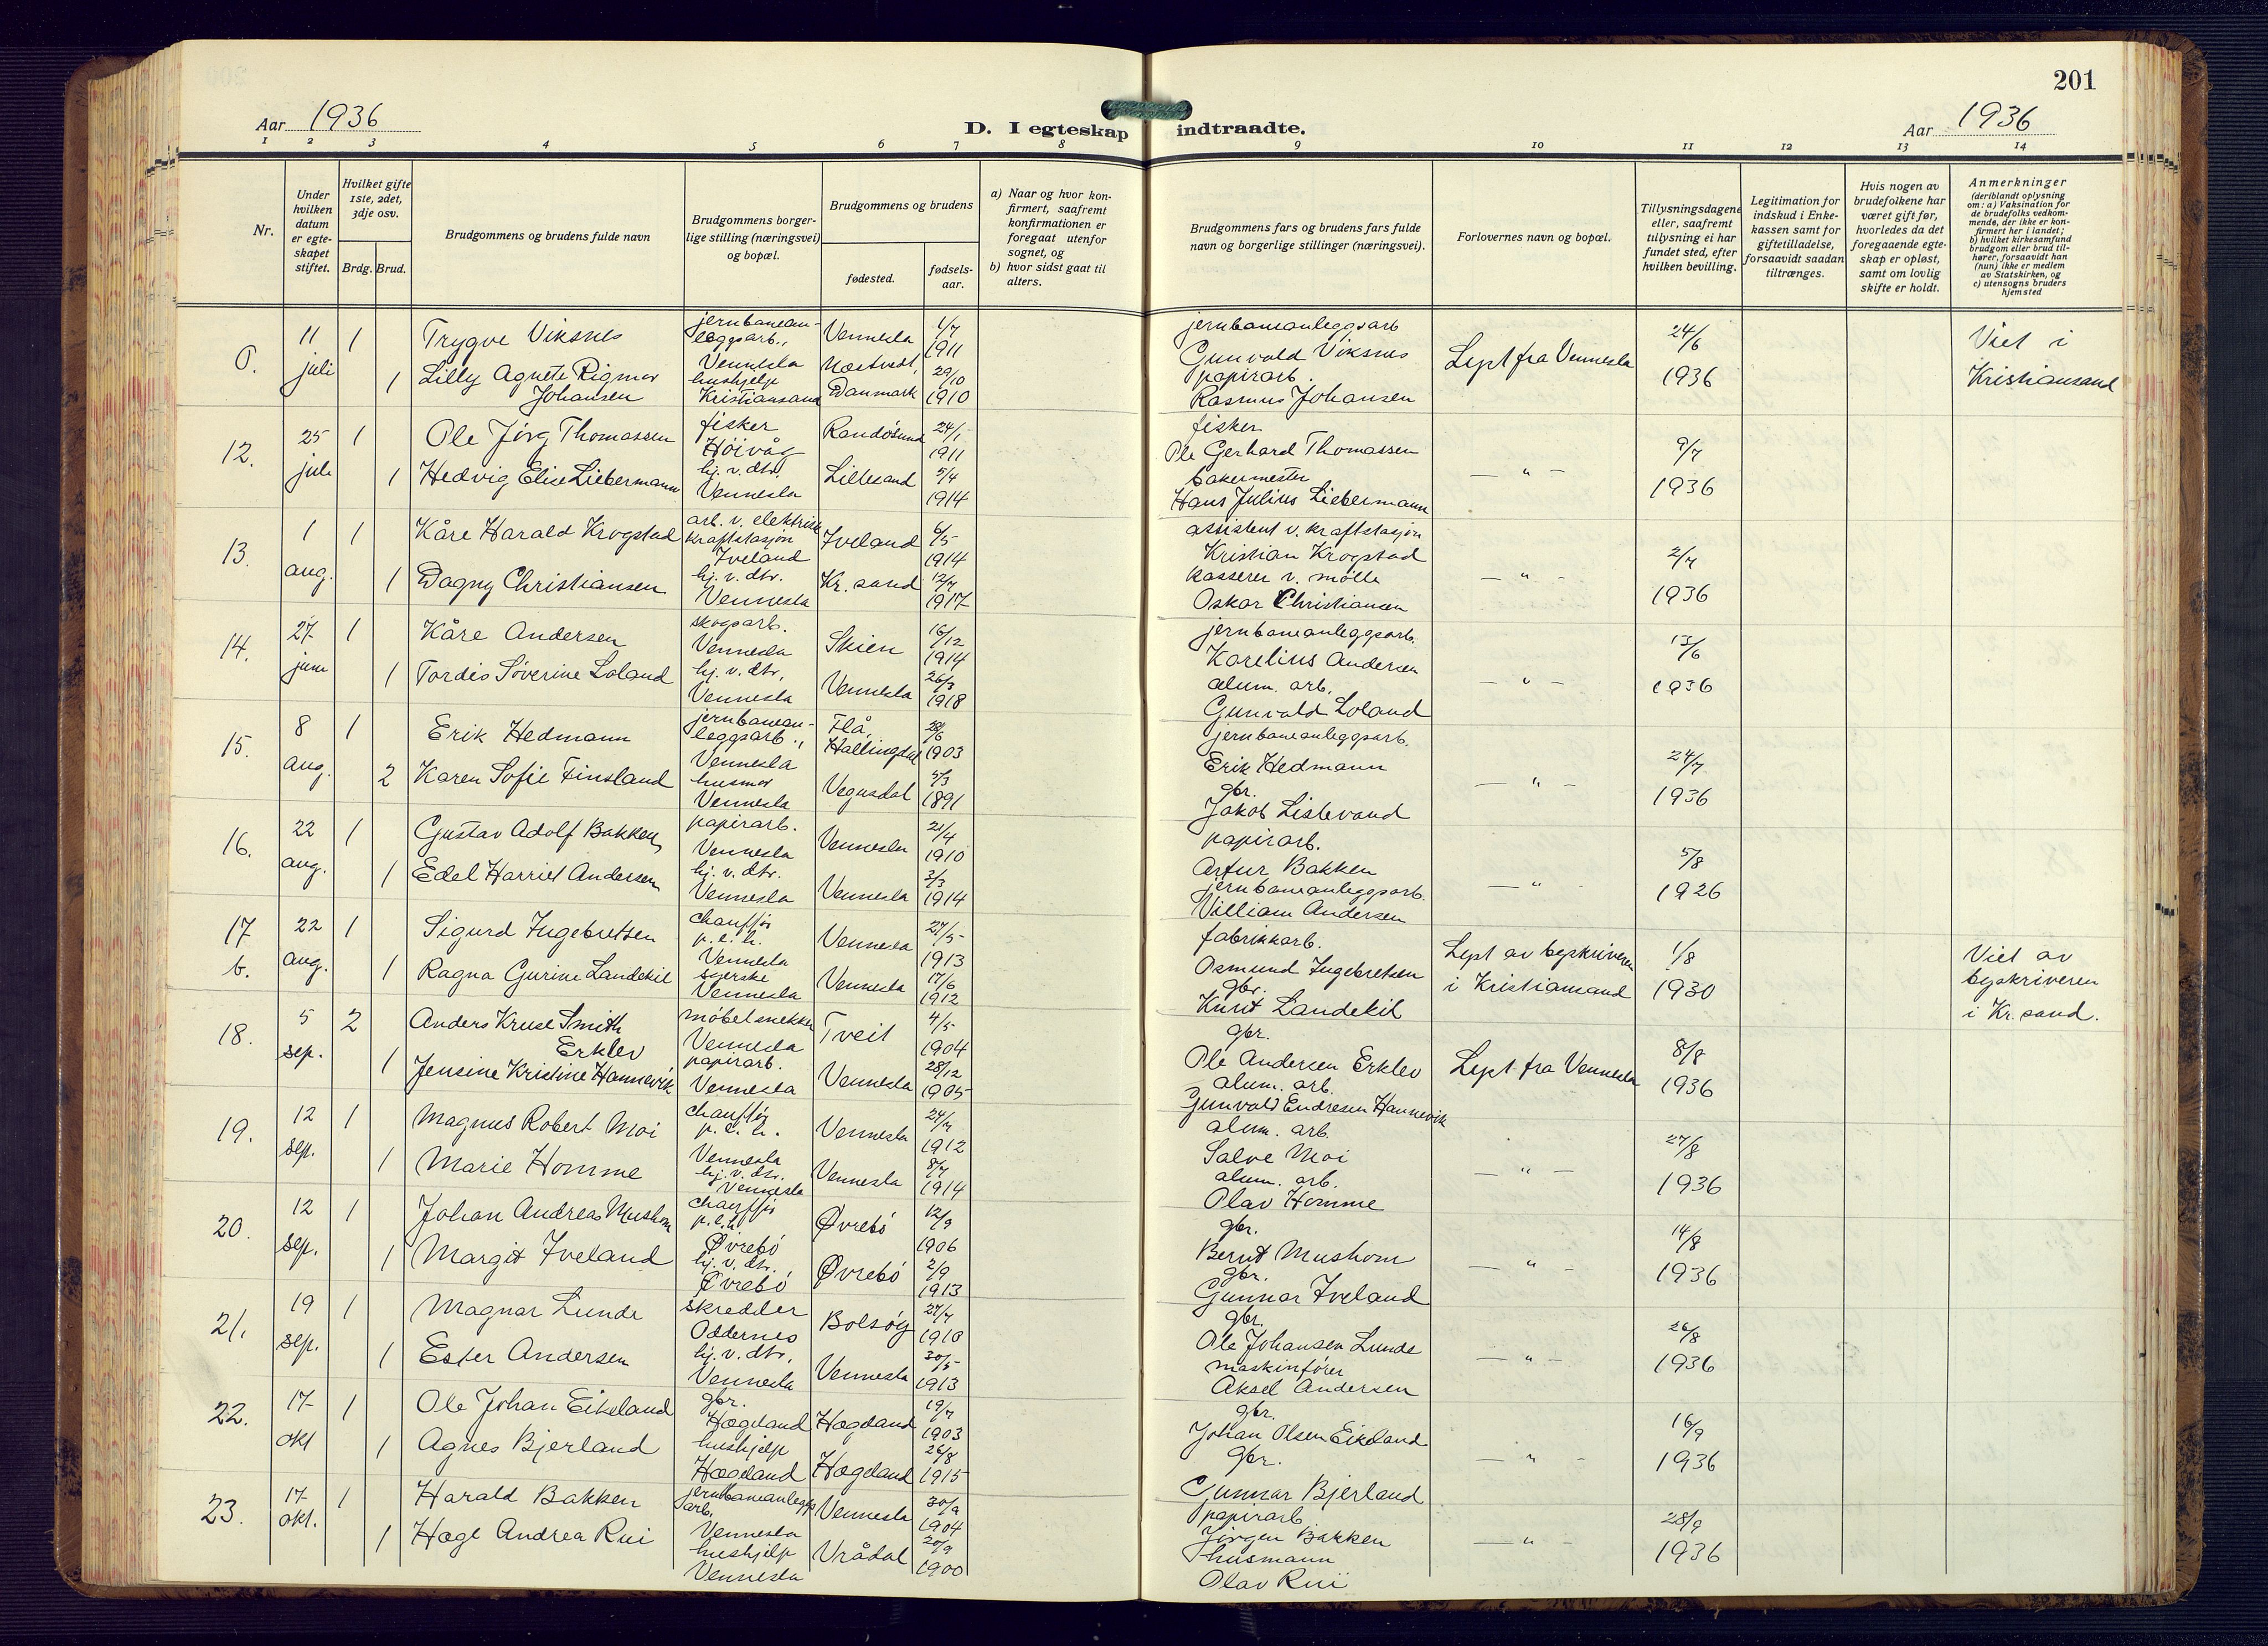 201
Aar 1936
D. I egteskap indtraadte.
Aar 1936
1 2 3 4 5 6 7 8 9 10 11 12 13 14
Nr.
Under hvilken datum er egteskapet stiftet.
Hvilket gifte 1ste, 2det, 3dje osv.
Brdg. Brud.
Brudgommens og brudens fulde navn
Brudgommens borgerlige stilling (næringsvei) og bopæl.
Brudgommens og brudens
fødested.
fødselsaar.
a) Naar og hvor konfirmert, saafremt konfirmationen er foregaat utenfor sognet, og
b) hvor sidst gaat til alters.
Brudgommens fars og brudens fars fulde navn og borgerlige stillinger (næringsvei).
Forlovernes navn og bopæl.
Tillysningsdagene eller, saafremt tillysning ei har fundet sted, efter hvilken bevilling.
Legitimation for indskud i Enkekassen samt for giftetilladelse, forsaavidt saadan tiltrænges.
Hvis nogen av brudefolkene har været gift før, hvorledes da det foregaaende egteskap er opløst, samt om lovlig skifte er holdt.
Anmerkninger
(deriblandt oplysning om: a) Vaksination for de brudefolks vedkommende, der ikke er konfirmert her i landet;
b) hvilket kirkesamfund brudgom eller brud tilhører, forsaavidt han (hun) ikke er medlem av Statskirken, og
c) utensogns bruders hjemsted
11 juli 1 Trygve Viksnes jernbaneanleggsarb., Vennesla Vennesla 1/7 1911 jernbaneanleggsarb Gunvald Viksnes Lyst fra Vennesla 24/6 1936 Viet i Kristiansand
1 Lilly Agnete Rigmor Johansen hushjelp Kristiansand Danmark 29/10 1910 papirarb. Rasmus Johansen
12. 25 juli 1 Ole Jörg Thomassen fisker Höivåg Randösund 24/1 1911 fisker Ole Gerhard Thomassen — " — 9/7 1936
1 Hedvig Elise Liebermann hj. v. dtr. Vennesla Lillesand 5/4 1914 bakermester Hans Julius Liebermann
13. 1 aug. 1 Kåre Harald Krogstad arb. v. elektrisk kraftstasjon Iveland Iveland 6/5 1914 assistent v. kraftstasjon Kristian Krogstad — " — 2/7 1936
1 Dagny Christiansen hj. v. dtr. Vennesla Kr. sand 12/7 1917 kasserer v. mölle Oskar Christiansen
14. 27 juni 1 Kåre Andersen skogsarb. Vennesla Skien 16/12 1914 jernbaneanleggsarb. Karelius Andersen — " — 13/6 1936
1 Tordis Söverine Loland hj. v. dtr. Vennesla Vennesla 26/3 1918 alum. arb. Gunvald Loland
15. 8 aug. 1 Erik Hedmann jernbaneanleggsarb., Vennesla Flå, Hallingdal 28/6 1903 jernbaneanleggsarb. Erik Hedmann — " — 24/7 1936
2 Karen Sofie Finsland husmor Vennesla Vegusdal 5/3 1891 gbr. Jakob Listevand
16. 22 aug. 1 Gustav Adolf Bakken papirarb. Vennesla Vennesla 21/4 1910 papirarb. Artur Bakken — " — 5/8 1926
1 Edel Harriet Andersen hj. v. dtr. Vennesla Vennesla 3/3 1914 jernbaneanleggsarb. William Andersen
17 b. 22 aug. 1 Sigurd Ingebretsen chaufför p.e.h. Vennesla Vennesla 27/5 1913 fabrikkarb. Osmund Ingebretsen Lyst av byskriveren i Kristiansand 1/8 1930 Viet av byskriveren i Kr. sand.
1 Ragna Gurine Landekil syerske Vennesla Vennesla 17/6 1912 gbr. Knut Landekil
18. 5 sep. 2 Anders Kruse Smith Erklev möbelsnekker Vennesla Tveit 4/5 1904 gbr. Ole Andersen Erklev Lyst fra Vennesla 8/8 1936
1 Jensine Kristine Hannevik papirarb. Vennesla Vennesla 28/12 1905 alum. arb. Gunvald Endresen Hannevik
19. 12 sep. 1 Magnus Robert Moi chaufför p.e.h. Vennesla Vennesla 24/7 1912 alum. arb. Salve Moi — " — 27/8 1936
1 Marie Homme hj. v. dtr. Vennesla Vennesla 8/7 1914 alum. arb. Olav Homme
20. 12 sep. 1 Johan Andreas Mushom chaufför p.e.h Övrebö Øvrebö 12/9 1906 gbr. Bernt Mushom — " — 14/8 1936
1 Margit Iveland hj. v. dtr. Övrebö Øvrebö 2/9 1913 gbr. Gunnar Iveland
21. 19 sep. 1 Magnar Lunde skredder Oddernes Bolsöy 27/7 1910 gbr. Ole Johansen Lunde — " — 26/8 1936
1 Ester Andersen hj. v. dtr. Vennesla Vennesla 30/5 1913 maskinförer Aksel Andersen
22. 17 okt 1 Ole Johan Eikeland gbr. Hægeland Hægeland 19/7 1903 gbr. Johan Olsen Eikeland — " — 16/9 1936
1 Agnes Bjerland hushjelp Hægeland Hægeland 26/8 1915 gbr. Gunnar Bjerland
23. 17 okt. 1 Harald Bakken jernbaneanleggsarb. Vennesla Vennesla 30/9 1904 papirarb. Jörgen Bakken — " — 28/9 1936
1 Hæge Andrea Rui hushjelp Vennesla Vrådal 20/9 1900 husmann Olav Rui